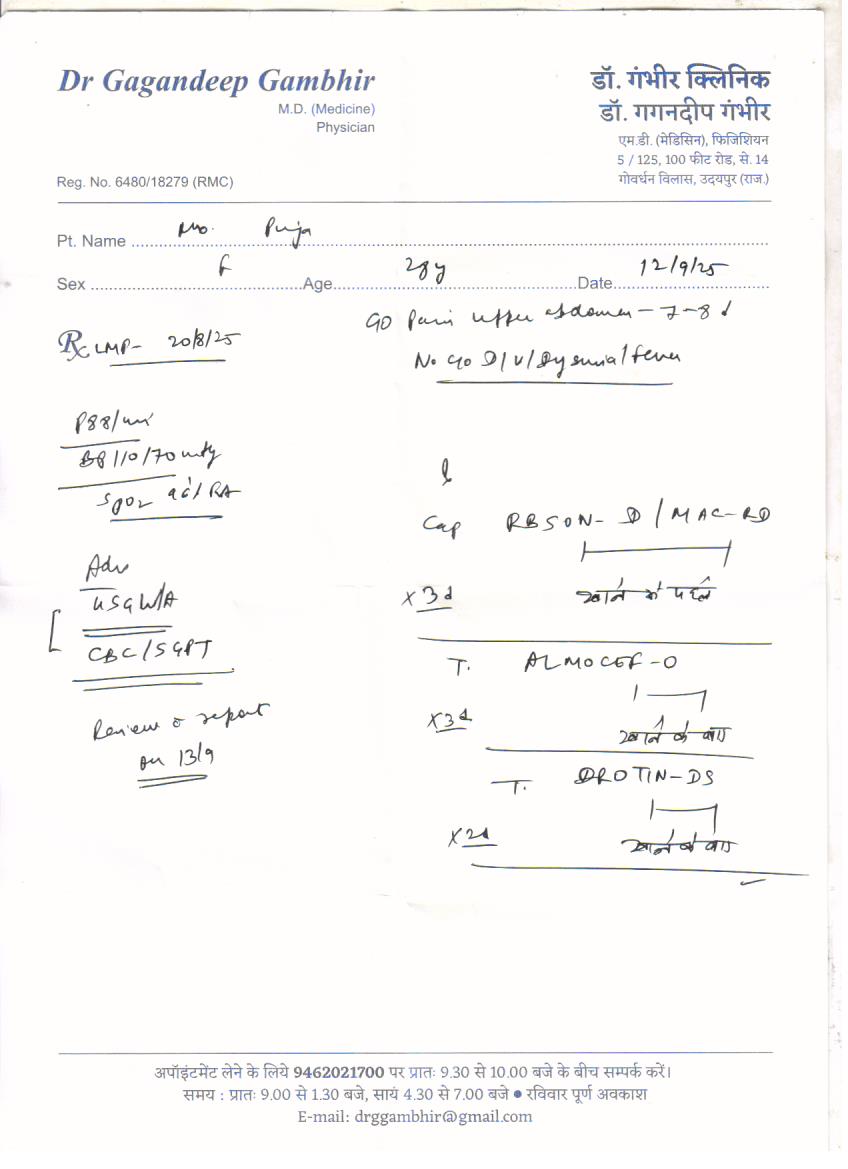 Dr Gagandeep Gambhir
M.D. (Medicine)
Physician
Reg. No. 6480/18279 (RMC)
डॉ. गंभीर क्लिनिक
डॉ. गगनदीप गंभीर
एम.डी. (मेडिसिन), फिजिशियन
5 / 125, 100 फीट रोड, से. 14
गोवर्धन विलास, उदयपुर (राज.)
Pt. Name Puja
Sex F Age 28y Date 12/9/25
C/O Pain upper abdomen - 7-8 d
Rx LMP- 20/8/25
No C/O D/V/Dysuria/fever
P88/min
BP 110/70
SPO2 RA
Cap RBSON-D / MAC-RD
खाने से पहले
X3d
Adv
USG W/A
CBC/SGPT
T. ALMOCEF-O
खाने के बाद
X3d
Review report
on 13/9
T. DROTIN-DS
खाने के बाद
X2d
अपॉइंटमेंट लेने के लिये 9462021700 पर प्रातः 9.30 से 10.00 बजे के बीच सम्पर्क करें।
समय : प्रातः 9.00 से 1.30 बजे, सायं 4.30 से 7.00 बजे ● रविवार पूर्ण अवकाश
E-mail: drggambhir@gmail.com